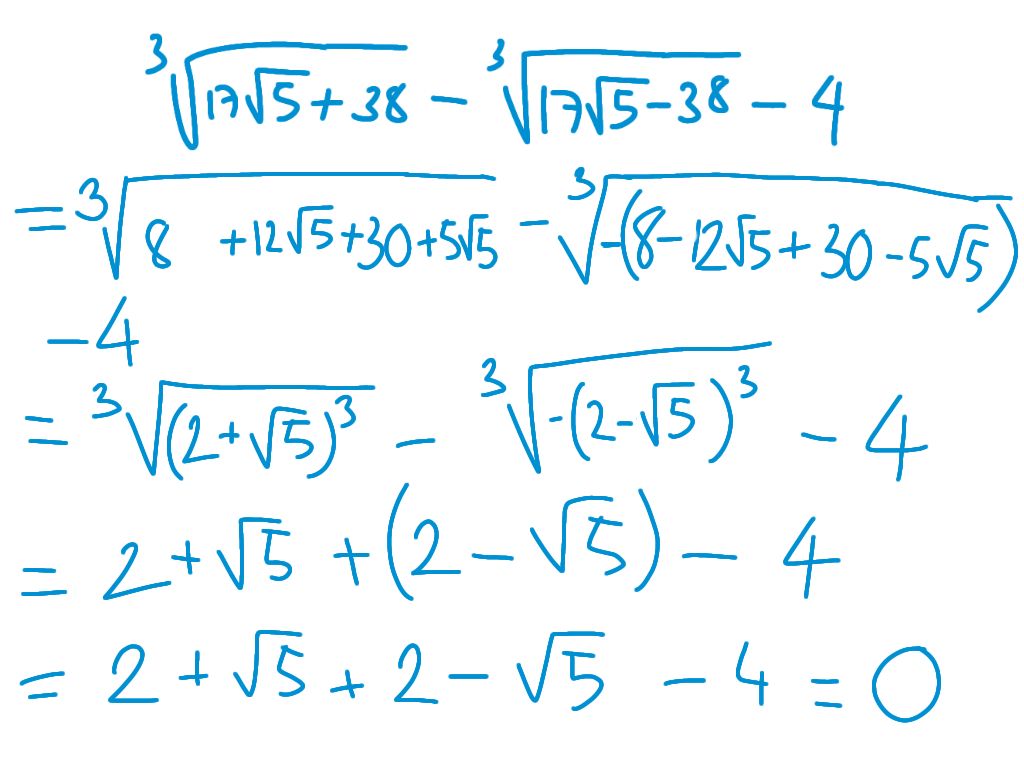 ∛(17√5+38) − ∛(17√5−38) − 4
= ∛(8 +12√5+30+5√5) − ∛(−(8−12√5+30−5√5))
−4
= ∛((2+√5)³) − ∛(−(2−√5)³) − 4
= 2+√5 +(2−√5) − 4
= 2+√5+2−√5 −4 = 0